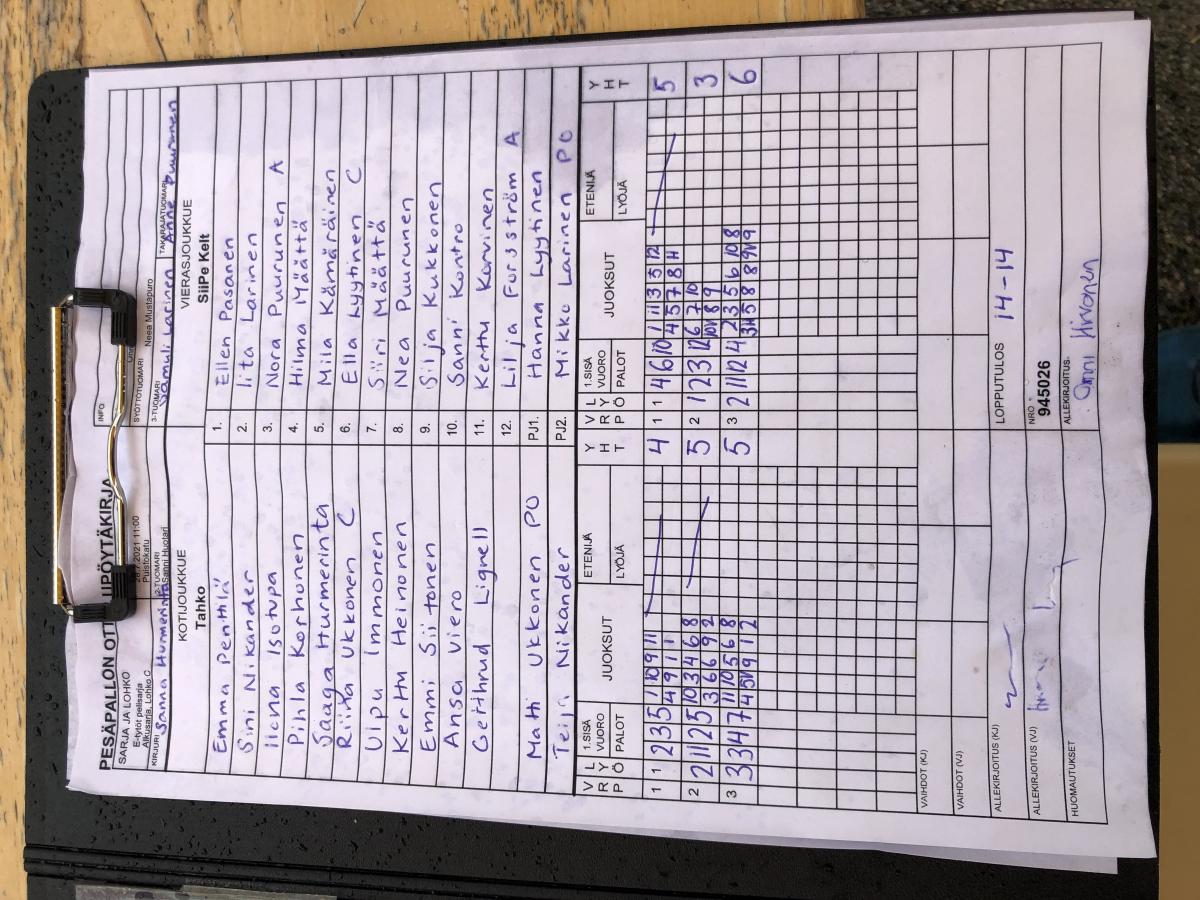 PESÄPALLON OTT UPÖYTÄKIRJA
SARJA JA LOHKO
E-tytöt pelisarja
Alkusarja, Lohko C
28.7.2021 11:00
Puistokatu
INFO
SYÖTTÖTUOMARI
KIRJURI Sanna Hurmerinta
2-TUOMARI
Sanni Huotari
3-TUOMARI Neea Mustapuro
Samuli Larinen
TAKARAJATUOMARI
Anne Puurunen
KOTIJOUKKUE
Tahko
VIERASJOUKKUE
SiiPe Kelt
Emma Penttilä 1. Ellen Pasanen
Sini Nikander 2. Iita Larinen
Ilona Isotupa 3. Nora Puurunen A
Pihla Korhonen 4. Hilma Määttä
Saaga Hurmerinta 5. Mila Kämäräinen
Riina Ukkonen C 6. Ella Lyytinen C
Ulpu Immonen 7. Siiri Määttä
Kerttu Heinonen 8. Nea Puurunen
Emmi Siitonen 9. Silja Kukkonen
Ansa Viero 10. Sanni Kontro
Gerthrud Lignell 11. Kerttu Korvinen
12. Lilja Forsström A
Matti Ukkonen PO PJ1. Hanna Lyytinen
Teija Nikander PJ2. Mikko Larinen PO
VRP LYÖ 1.SISÄ VUORO PALOT JUOKSUT ETENIJÄ LYÖJÄ YHT VRP LYÖ 1.SISÄ VUORO PALOT JUOKSUT ETENIJÄ LYÖJÄ YHT
1 1 2 3 5 1 10 9 11 4 1 1 4 6 10 1 11 3 5 12 5
4 9 1 1 4 5 7 8 11
2 2 11 2 5 10 3 4 6 8 5 2 1 2 3 12 6 7 10 3
3 6 6 9 2 10 8 9
3 3 3 4 7 11 10 5 6 8 5 3 2 11 12 4 2 3 5 6 10 8 6
VAIHDOT (KJ)
VAIHDOT (VJ)
ALLEKIRJOITUS (KJ)
LOPPUTULOS 14-14
ALLEKIRJOITUS (VJ)
NRO
945026
HUOMAUTUKSET
ALLEKIRJOITUS
Onni Hirvonen